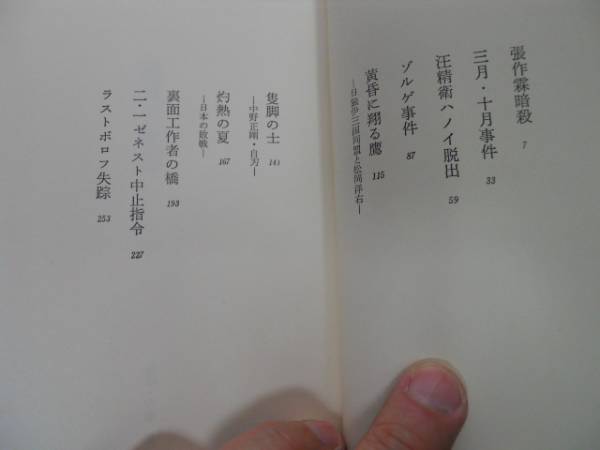 張作霖暗殺 7
三月・十月事件 33
汪精衛ハノイ脱出 59
ゾルゲ事件 87
黄昏に翔る鷹 115
―日独伊三国同盟と松岡洋右―
隻脚の士 141
―中野正剛・自刃―
灼熱の夏 167
―日本の敗戦―
裏面工作者の橋 193
二・一ゼネスト中止指令 227
ラストボロフ失踪 253